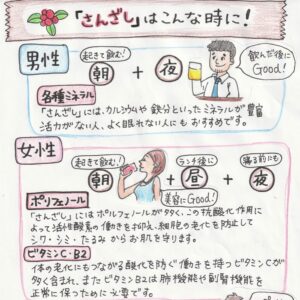 「さんざし」はこんな時に!
男性
起きて飲む!
朝 + 夜
飲んだ後に
Good!
各種ミネラル
「さんざし」には、カルシウムや鉄分といったミネラルが豊富
活力がない人、よく眠れない人にもおすすめです。
女性
起きて飲む!
ランチ後に
寝る前にも
朝 + 昼 + 夜
美容にGood!
Good!
ポリフェノール
「さんざし」にはポルフェノールが多く、この抗酸化作用に
よって活性酸素の働きを抑え、細胞の老化を防止して
シワ・シミ・たるみからお肌を守ります。
ビタミンC・B2
体の老化にもつながる酸化を防ぐ働きを持つビタミンCが
多く含まれ、またビタミンB2は肺機能や副腎機能を
正常に保つために必要です。